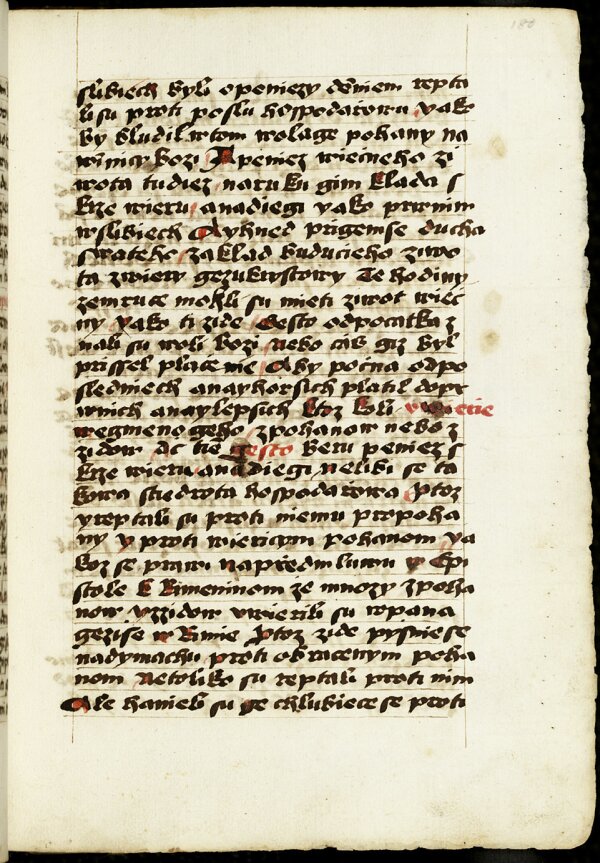 188
slibiech byli o peniezy deniem repta
li su proti poslu hospodarowu yako
by bludil w tom wolage pohany na
winicy bozi A peniez wiecneho zi
wota tudiez na ruku gim klada s
krze wieru a nadiegi yako prwnim
w slibiech A yhned prigemse ducha
swateho zaklad buducieho ziwo
ta zwiery gezukrystowy Te hodiny
zemruce mohli su mieti ziwot wiec
ny yako ti zide gesto od pocatka z
nali su woli bozi nebo cas giz byl
prissel place nie A by pocina od po
sledniech a nayhorsich platil do pr
wnich a naylepsich ktoz koli vwierie
wegmeno geho z pohanow nebo z
zidow ac tie gesto beru peniez s
krze wieru a nadiegi nelibi se ta
kowa stiedrota hospodarowa Protoz
y reptali su proti niemu pro poha
ny y proti wiericym pohanom ya
koz se prawi na przedmluwu w Epi
stole k Rimeninom ze mnozy z poha
now y z zidow vwierili su w pana
gezise w Rimie Protoz zide pysnie se
nadymachu proti obracenym poha
nom Netoliko su reptali proti nim
Ale hanieli su ge chlubiece se proti